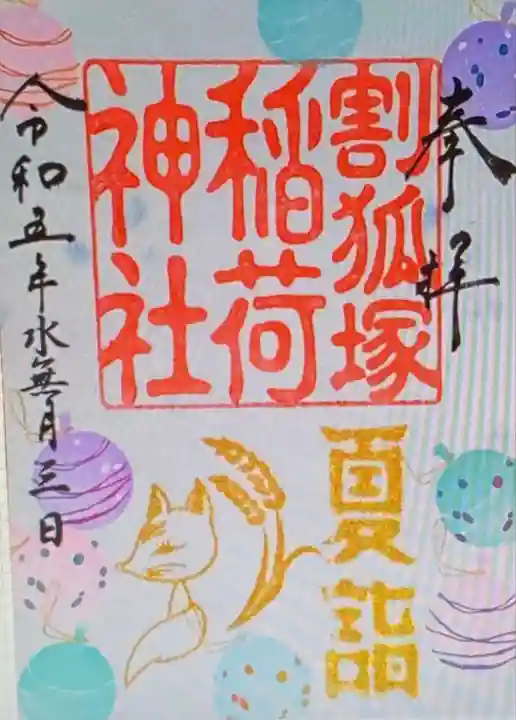 奉拝
割狐塚
稲荷
神社
夏詣
令和五年水無月三日